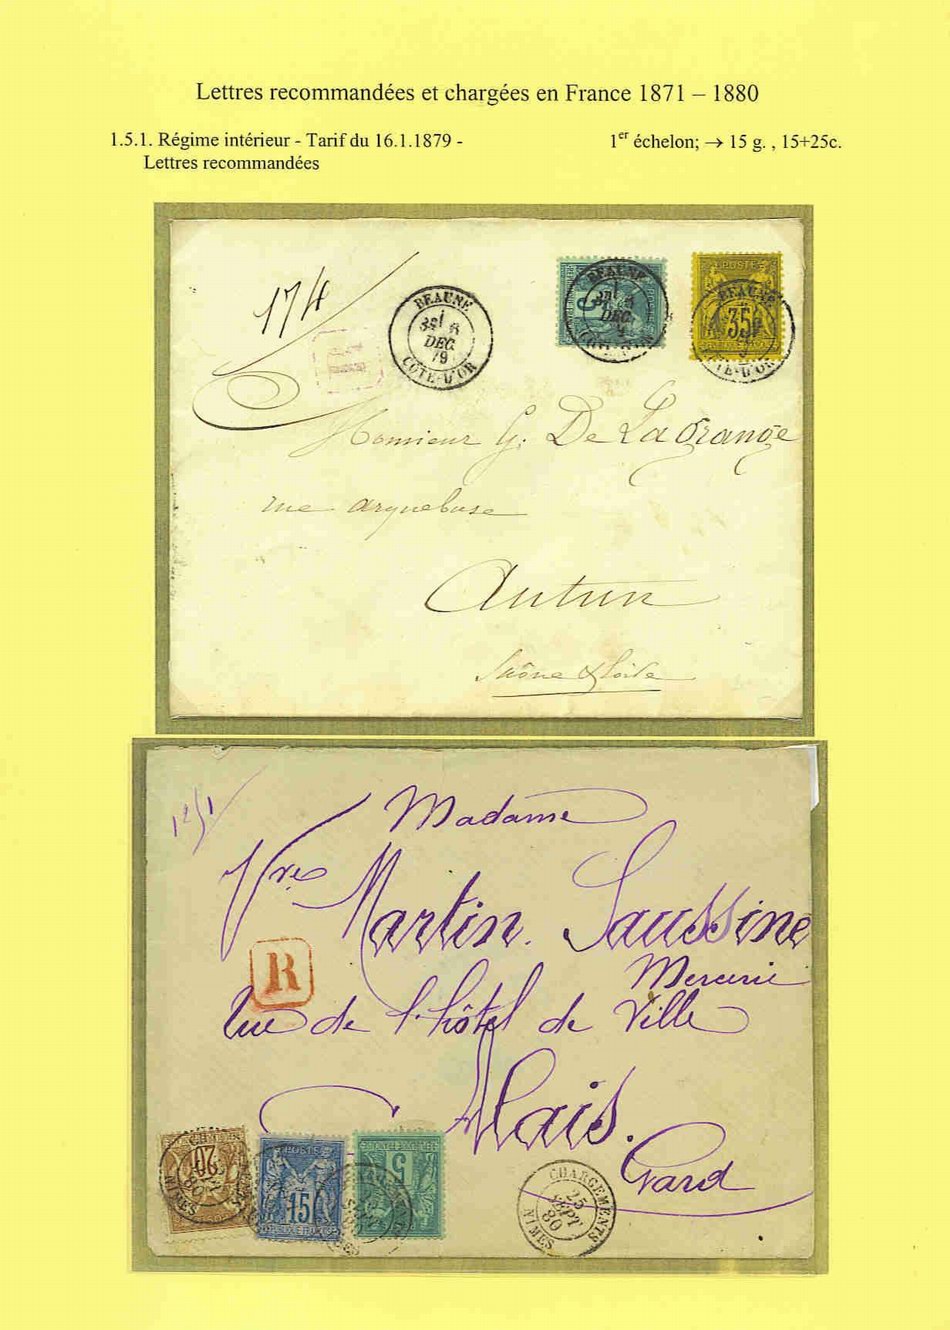 Lettres recommandées et chargées en France 1871 – 1880
1.5.1. Régime intérieur - Tarif du 16.1.1879 -
Lettres recommandées
1er échelon; → 15 g. , 15+25c.
174
BEAUNE
DEC
79
CÔTE-D'OR
BEAUNE
DEC
POSTE
BEAUNE
35
Monsieur G. De Lagrange
rue arquebuse
Autun
Saône & Loire
Madame
Martin Saussine
Mercerie
R
Rue de l'hôtel de Ville
Alais.
Gard
20
80
NIMES
POSTE
15
5
CHARGEMENTS
25
SEPT
80
NIMES